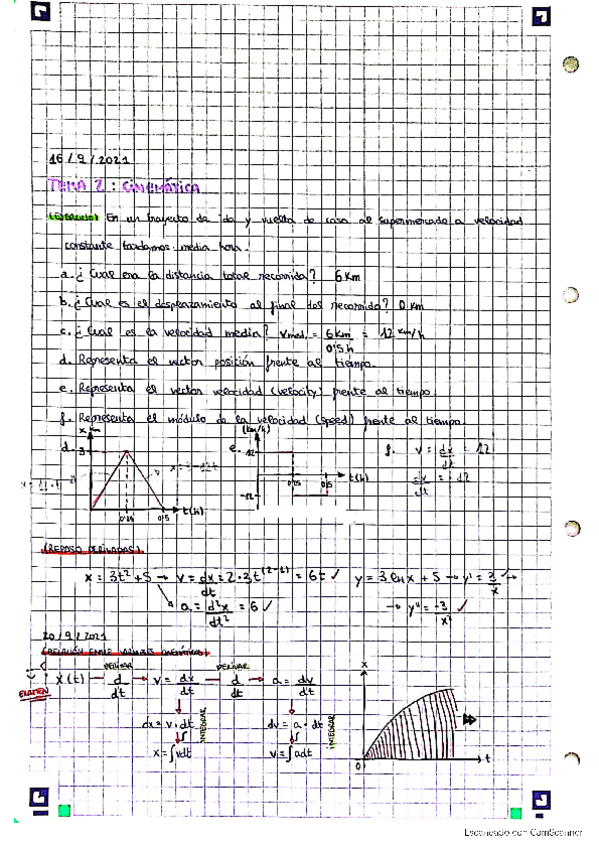 16/9/2021
TEMA 2: CINEMÁTICA
(EJERCICIO) En un trayecto de ida y vuelta de casa al supermercado a velocidad
constante tardamos media hora.
a. ¿Cual era la distancia total recorrida? 6 Km
b. ¿Cual es el desplazamiento al final del recorrido? 0 Km
c. ¿Cual es la velocidad media? Vmed. = 6 km / 0'5 h = 12 km/h
d. Representa el vector posición frente al tiempo.
e. Representa el vector velocidad (velocity) frente al tiempo.
f. Representa el módulo de la velocidad (speed) frente al tiempo.
d. x km 3 0'5 t(h)
e. (km/h) 12 -12 0'25 0'5 t(h)
f. v = dx/dt = 12
dx/dt = -12
(REPASO DERIVADAS)
x = 3t² + 5 → v = dx/dt = 2·3t^(2-1) = 6t ✓ y = 3 ln x + 5 → y' = 3/x →
a = d²x/dt² = 6 ✓ → y'' = -3/x² ✓
20/9/2021
(RELACIÓN ENTRE VARIABLES CINEMÁTICAS)
EXAMEN
x(t) — DERIVAR d/dt → v = dx/dt — DERIVAR d/dt → a = dv/dt
dx = v·dt INTEGRAR dv = a·dt INTEGRAR
x = ∫vdt v = ∫adt
x t 0
Escaneado con CamScanner